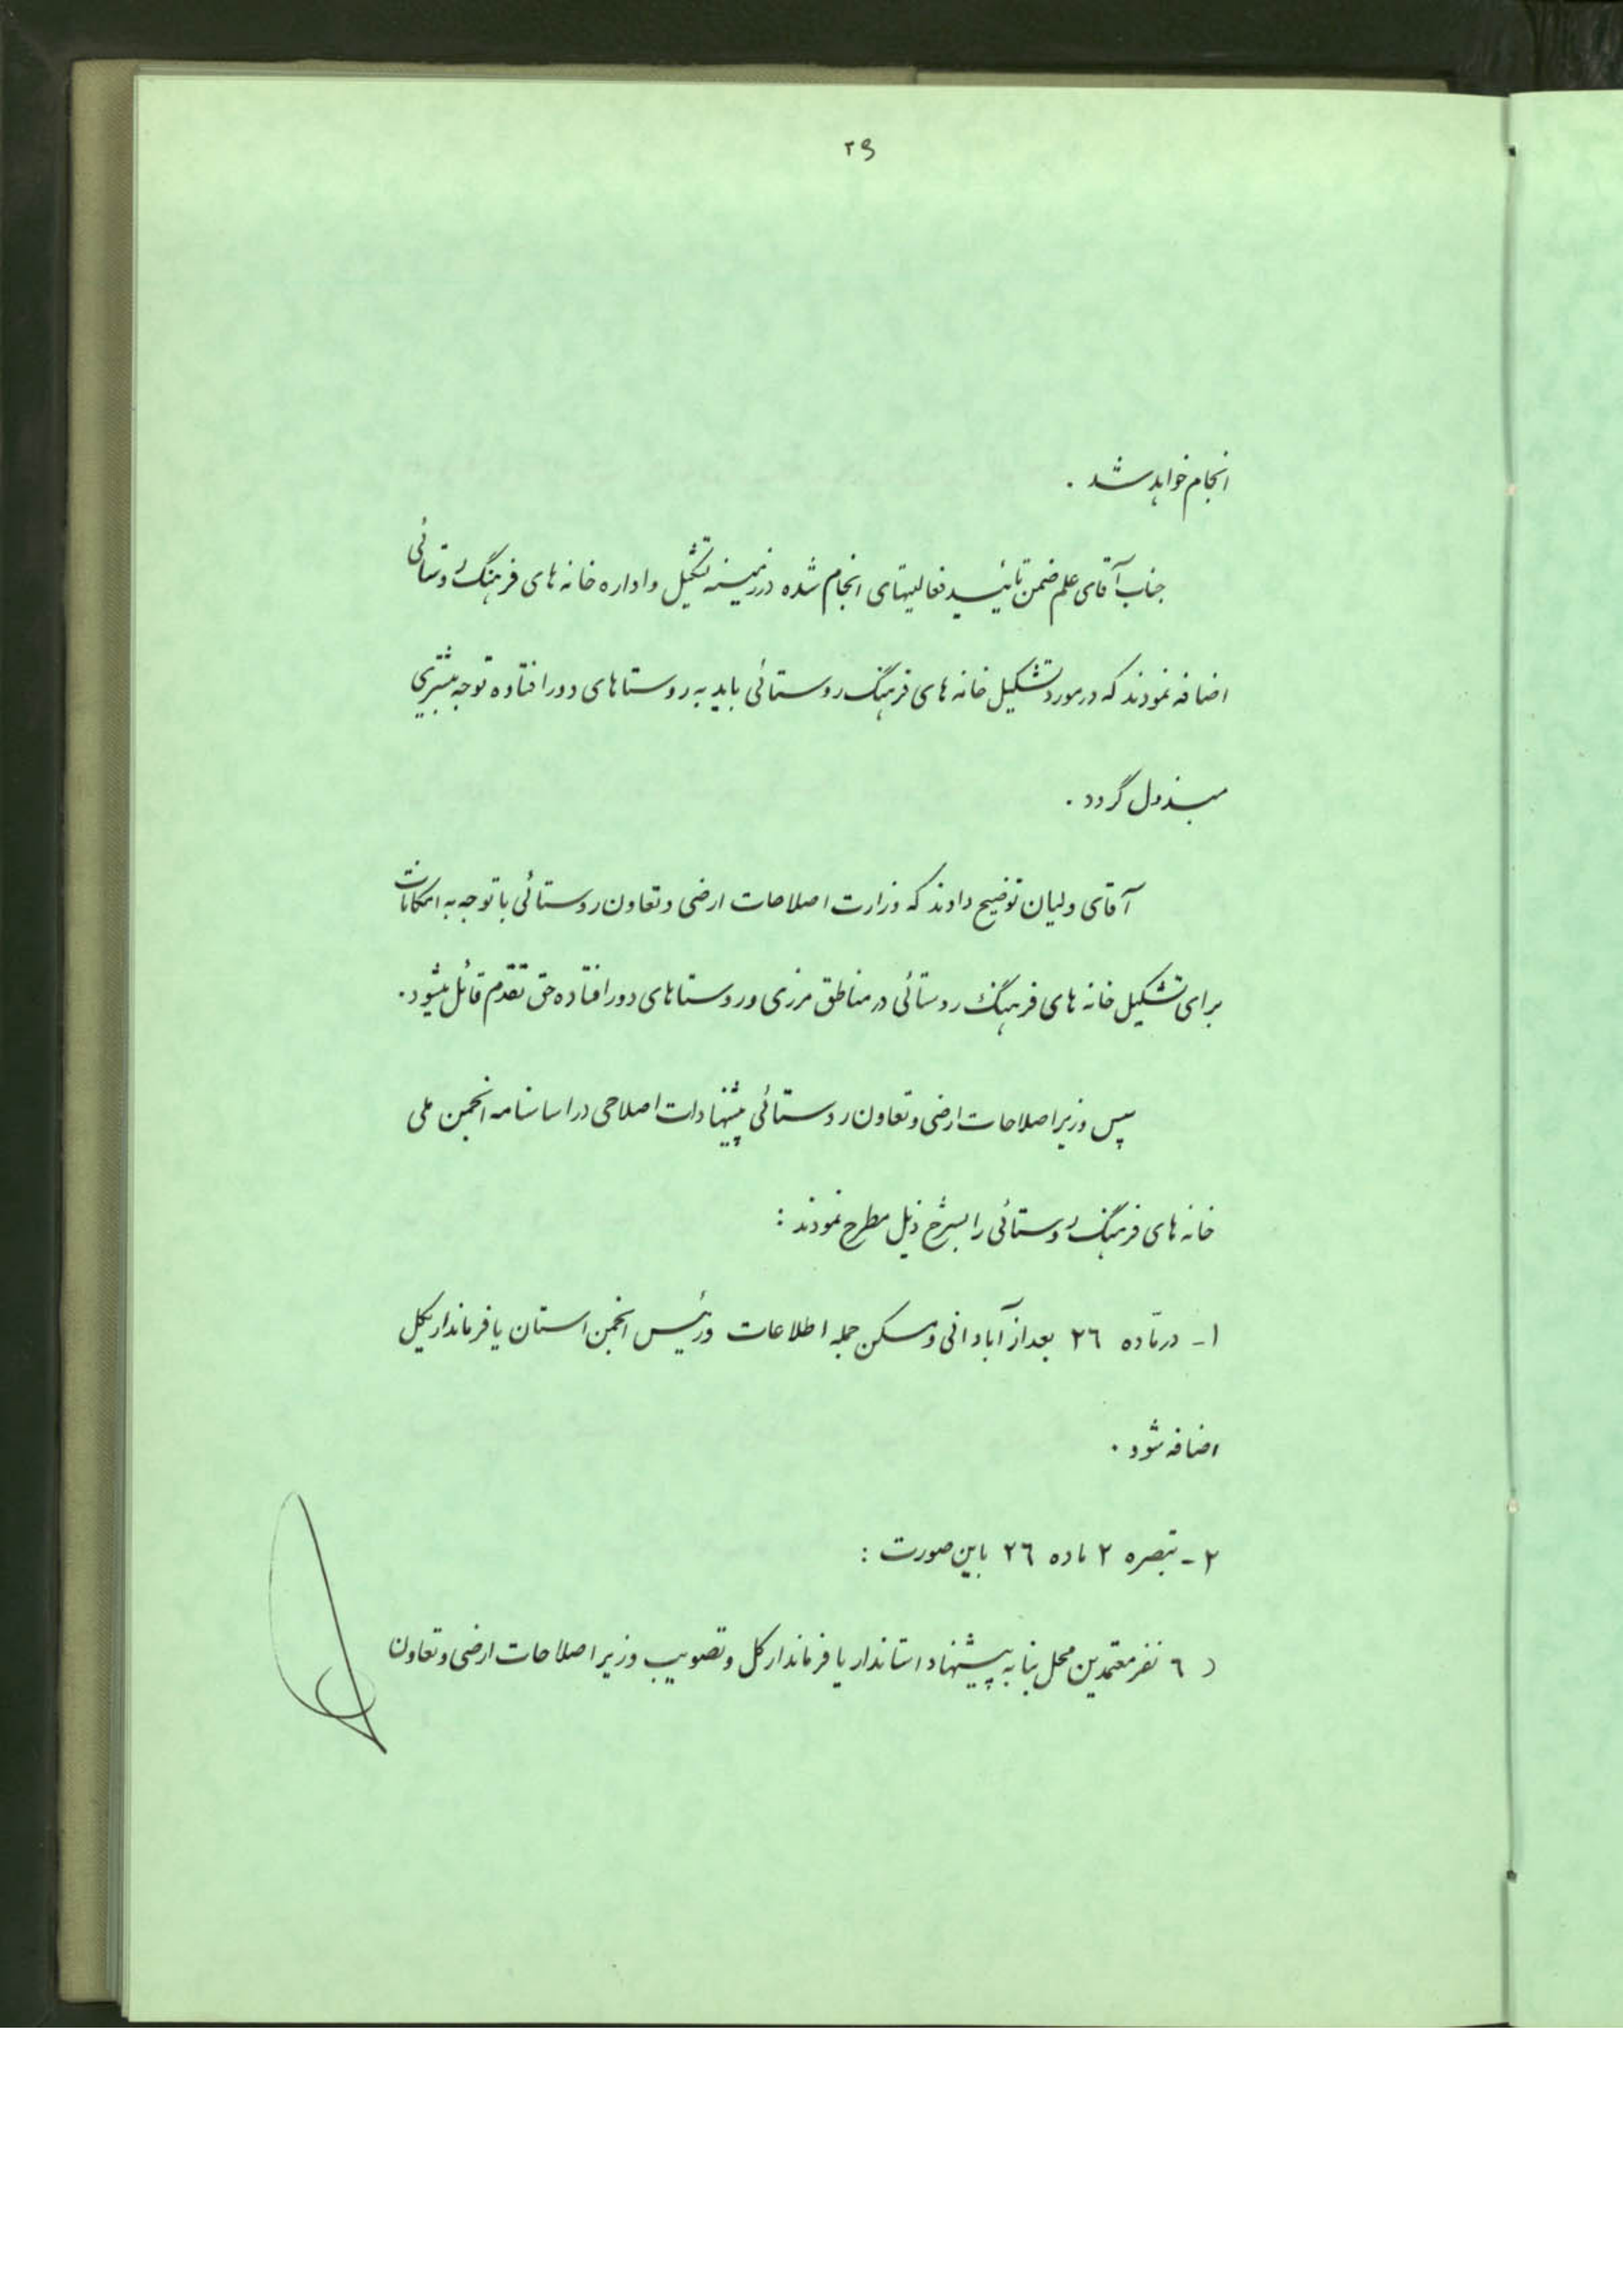 ۲۹
انجام خواهد شد .
جناب آقای علم ضمن تائید فعالیتهای انجام شده در زمینه تشکیل و اداره خانه های فرهنگ روستائی
اضافه نمودند که در مورد تشکیل خانه های فرهنگ روستائی باید به روستاهای دور افتاده توجه بیشتری
مبذول گردد .
آقای ولیان توضیح دادند که وزارت اصلاحات ارضی و تعاون روستائی با توجه به امکانات
برای تشکیل خانه های فرهنگ روستائی در مناطق مرزی و روستاهای دور افتاده حق تقدم قائل میشود .
سپس وزیر اصلاحات ارضی و تعاون روستائی پیشنهادات اصلاحی در اساسنامه انجمن ملی
خانه های فرهنگ روستائی را بشرح ذیل مطرح نمودند :
۱- در ماده ۲٦ بعد از آبادانی و مسکن جمله اطلاعات و رئیس انجمن استان یا فرمانداریکل
اضافه شود .
۲- تبصره ۲ ماده ۲٦ باین صورت :
( ٦ نفر معتمدین محل بنا به پیشنهاد استاندار یا فرماندار کل و تصویب وزیر اصلاحات ارضی و تعاون